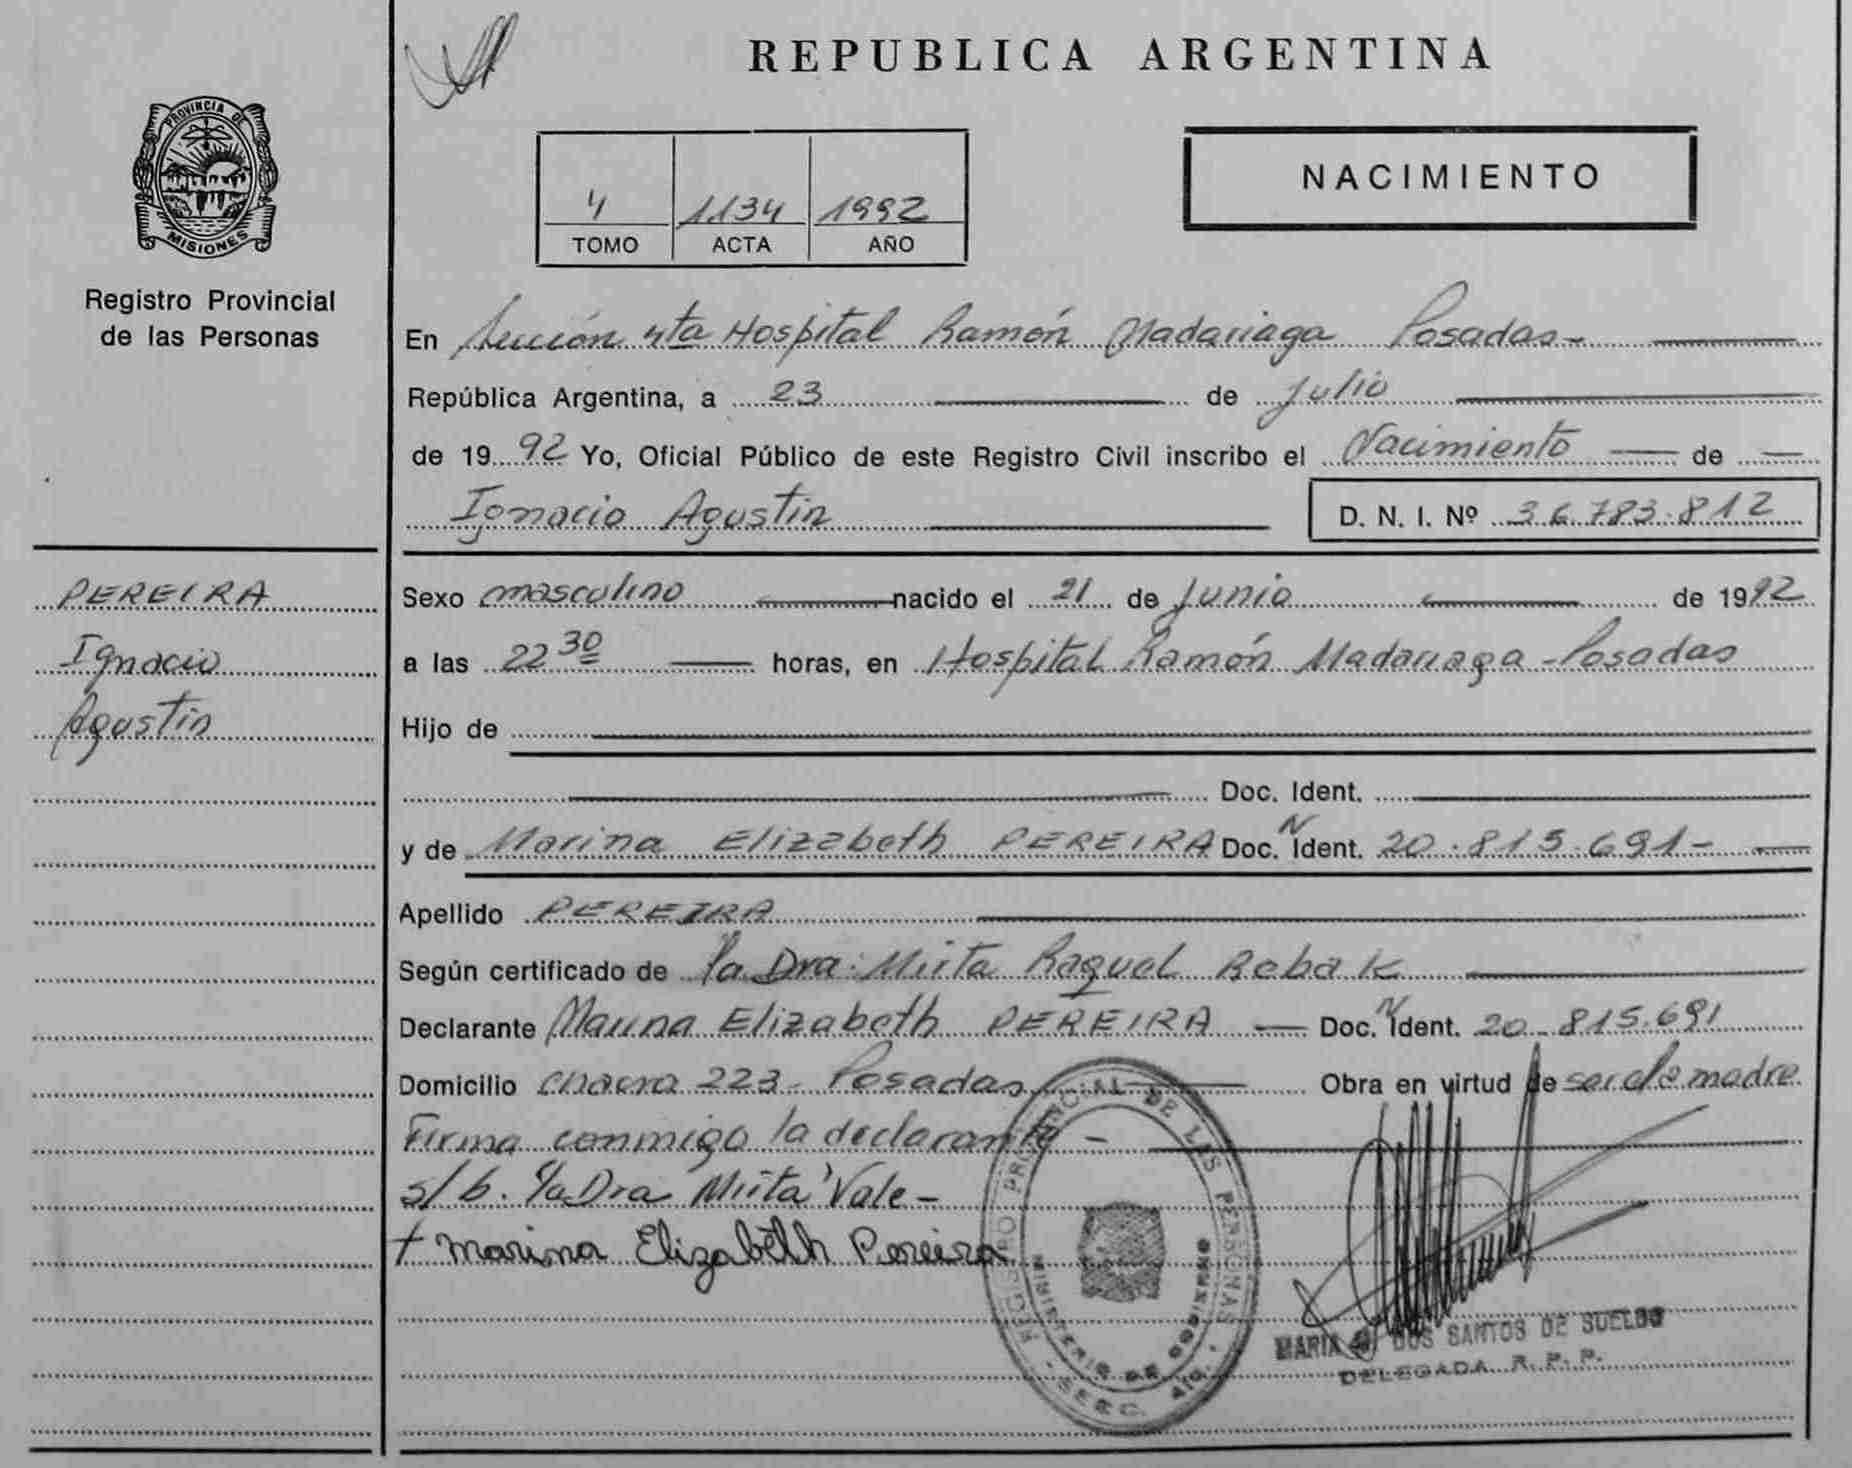 REPUBLICA ARGENTINA
PROVINCIA DE
MISIONES
Registro Provincial
de las Personas
4 1134 1992
TOMO ACTA AÑO
NACIMIENTO
En Sección 4ta Hospital Ramón Madariaga Posadas-
República Argentina, a 23 de Julio
de 1992 Yo, Oficial Público de este Registro Civil inscribo el Nacimiento de
Ignacio Agustin D. N. I. Nº 36.783.812
PEREIRA
Ignacio
Agustin
Sexo masculino nacido el 21 de Junio de 1992
a las 22 30 horas, en Hospital Ramón Madariaga-Posadas
Hijo de
Doc. Ident.
y de Marina Elizabeth PEREIRA Doc. N Ident. 20.815.691-
Apellido PEREIRA
Según certificado de la Dra. Mirta Raquel Rebak
Declarante Marina Elizabeth PEREIRA Doc. N Ident. 20.815.691
Domicilio chacra 223- Posadas Obra en virtud de ser de madre
Firma conmigo la declarante -
s/b. la Dra Mirta Vale-
+ Marina Elizabeth Pereira
REGISTRO PROVINCIAL DE LAS PERSONAS
MINISTERIO DE GOBIERNO
- SECC. 4ta. -
MARIA DOS SANTOS DE SUELDO
DELEGADA R. P. P.